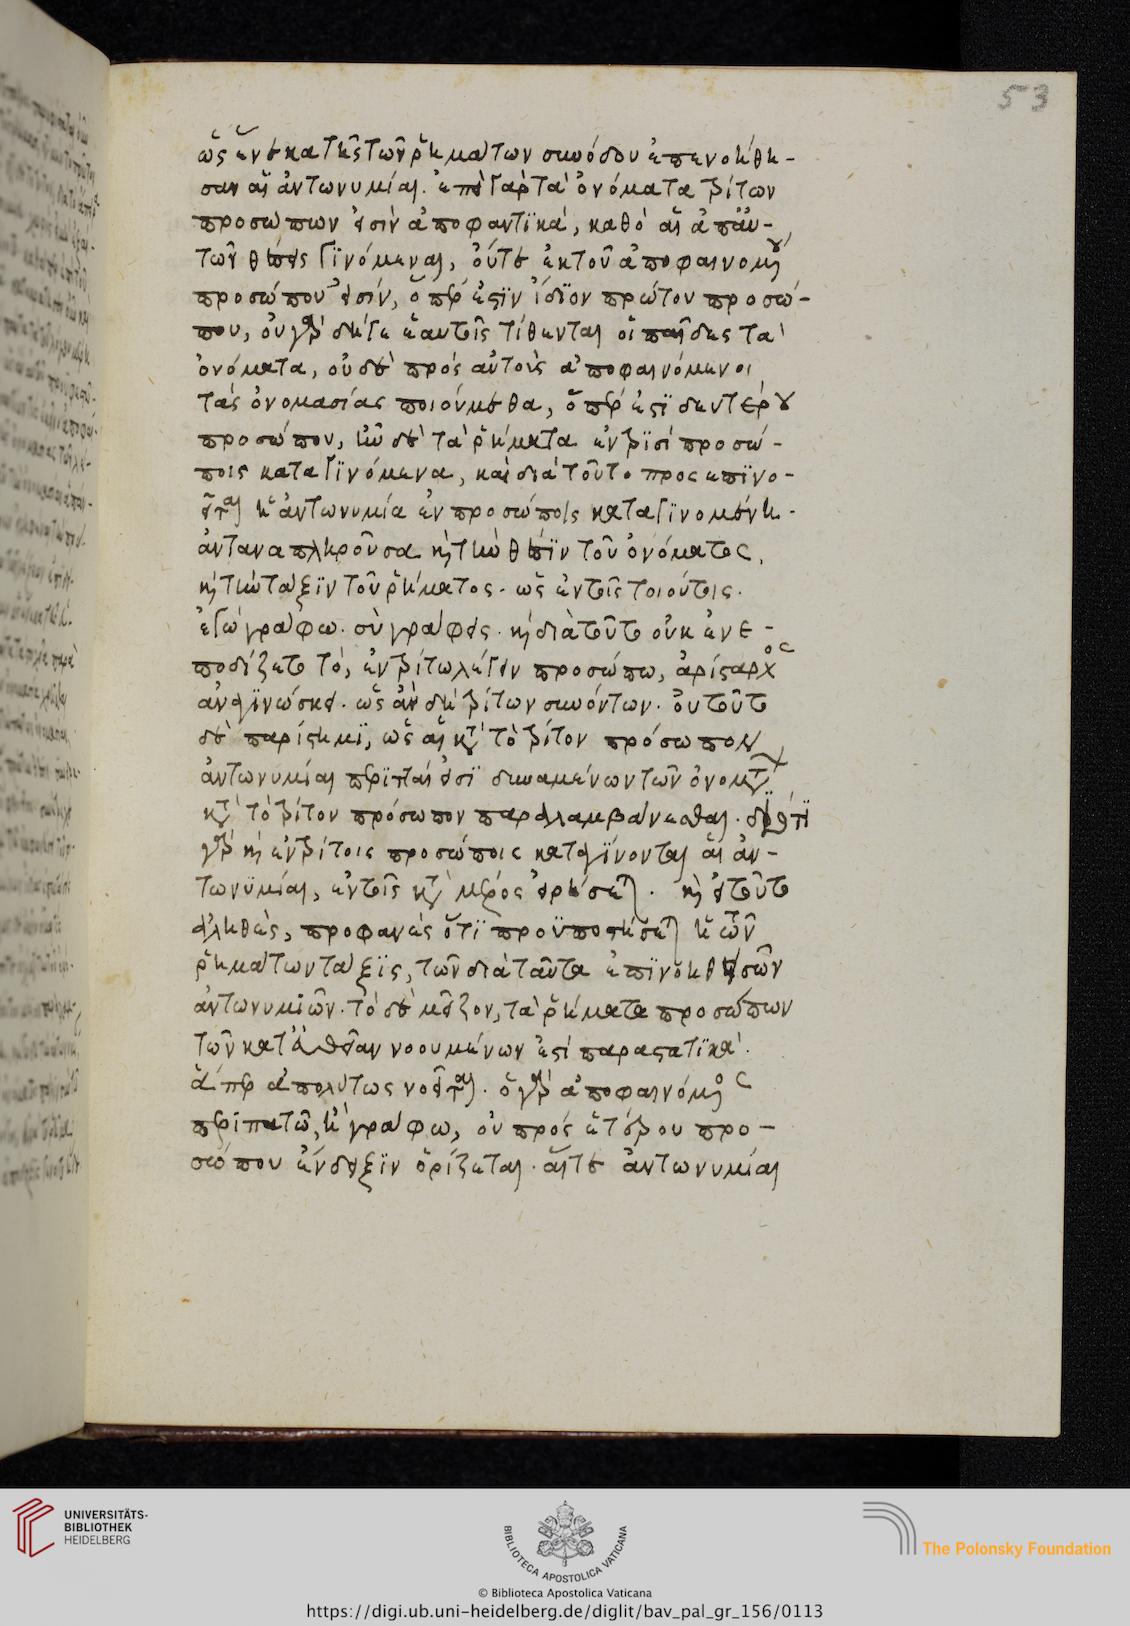 53
ὡς ἕνεκα τῆς τῶν ῥημάτων συνόδου ἐπενοήθη-
σαν αἱ ἀντωνυμίαι. ἐπεὶ γὰρ τὰ ὀνόματα τρίτων
προσώπων εἰσὶν ἀποφαντικά, καθὸ αἱ ἀπ' αὐ-
τῶν θέσεις γινόμεναι, οὔτε ἐκ τοῦ ἀποφαινομένου
προσώπου εἰσίν, ὅπερ ἐστὶν ἴδιον πρώτου προσώ-
που, οὐ γὰρ δήγε ἑαυτοῖς τίθενται οἱ παῖδες τὰ
ὀνόματα, οὐδὲ πρὸς αὐτοὺς ἀποφαινόμενοι
τὰς ὀνομασίας ποιούμεθα, ὅπερ ἐστὶ δευτέρου
προσώπου, ἦν δὲ τὰ ῥήματα ἐν τρισὶ προσώ-
ποις καταγινόμενα, καὶ διὰ τοῦτο προσεπινο-
εῖται ἡ ἀντωνυμία ἐν προσώποις καταγινομένη.
ἀνταναπληροῦσα καὶ τὴν θέσιν τοῦ ὀνόματος,
καὶ τὴν τάξιν τοῦ ῥήματος. ὡς ἐν τοῖς τοιούτοις.
ἐγὼ γράφω. σὺ γράφεις. καὶ διὰ τοῦτο οὐκ ἐνε-
ποδίζετο τό, ἐν τρίτῳ λέγειν προσώπῳ, ἀρίσταρχος
ἀναγινώσκει. ὡς ἂν δὴ τρίτων συνόντων. οὐ τοῦτο
δὲ παρίστημι, ὡς αἱ κατὰ τὸ τρίτον πρόσωπον
ἀντωνυμίαι περιτταί εἰσι δυναμένων τῶν ὀνομάτων
κατὰ τὸ τρίτον πρόσωπον παραλαμβάνεσθαι.
γὰρ καὶ ἐν τρίτοις προσώποις καταγίνονται αἱ ἀν-
τωνυμίαι, ἐν τοῖς κατὰ μέρος εἰρήσεται. καὶ εἰ τοῦτο
ἀληθές, προφανὲς ὅτι προϋποστήσεται ἡ τῶν
ῥημάτων τάξις, τῶν διὰ ταῦτα ἐπινοηθεισῶν
ἀντωνυμιῶν. τὸ δὲ μεῖζον, τὰ ῥήματα προσώπων
τῶν κατ' εὐθεῖαν νοουμένων ἐστὶ παραστατικά.
ἅπερ ἀπολύτως νοεῖται. ὁ γὰρ ἀποφαινόμενος
περιπατῶ, ἢ γράφω, οὐ πρὸς ἑτέρου προ-
σώπου ἔνδειξιν ὁρίζεται. αἵ τε ἀντωνυμίαι
UNIVERSITÄTS-
BIBLIOTHEK
HEIDELBERG
BIBLIOTECA APOSTOLICA VATICANA
The Polonsky Foundation
© Biblioteca Apostolica Vaticana
https://digi.ub.uni-heidelberg.de/diglit/bav_pal_gr_156/0113